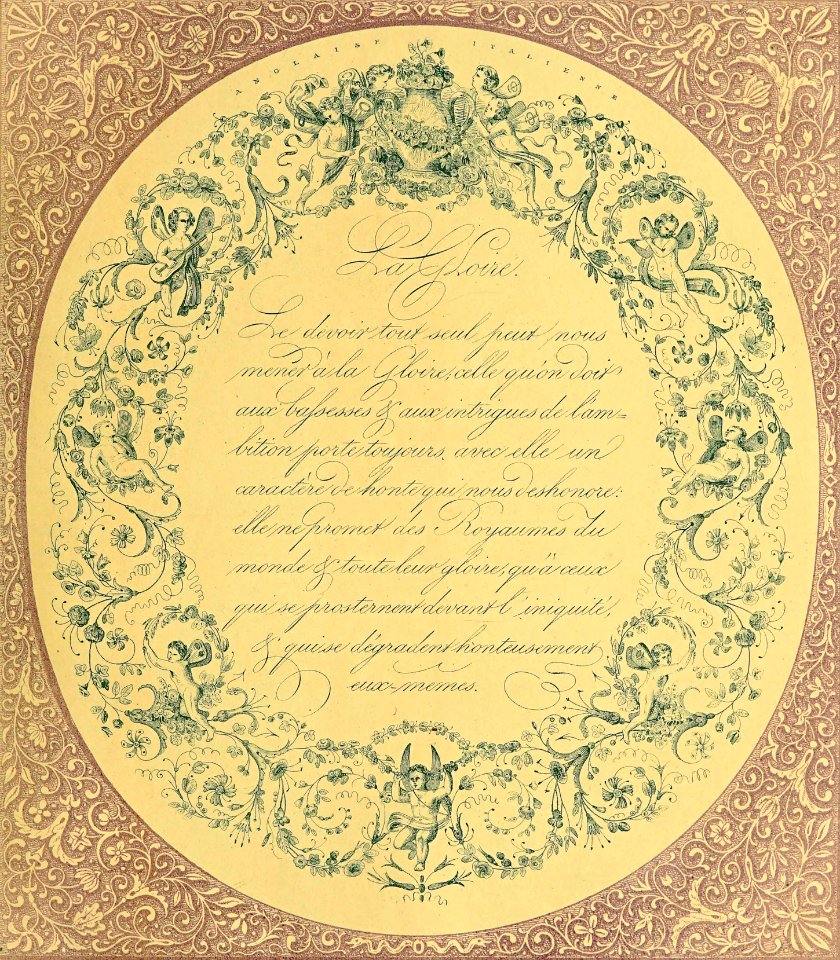 ANGLAISE ITALIENNE
La Gloire.
Le devoir tout seul peut nous
mener à la Gloire, celle qu'on doit
aux bassesses & aux intrigues de l'am=
bition porte toujours avec elle un
caractère de honte qui nous deshonore:
elle ne promet des Royaumes du
monde & toute leur gloire, qu'à ceux
qui se prosternent devant l'iniquité,
& qui se dégradent honteusement
eux-mêmes.